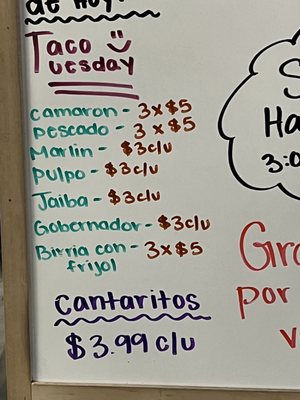 de Hoy!
Taco
Tuesday
camaron - 3 x $5
pescado - 3 x $5
Marlin - $3 c/u
Pulpo - $3 c/u
Jaiba - $3 c/u
Gobernador - $3 c/u
Birria con - 3 x $5
frijol
Cantaritos
$3.99 c/u
S
Ha
3:0
Gra
por
v